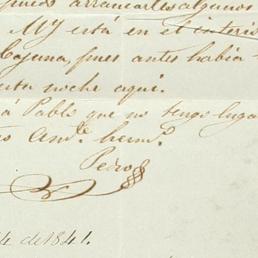 arrancarles algunos
My está en el interi
Laguna, pues antes habia
esta noche aqui.
á Pablo que no tengo luga
Amte. herm.
Pedro
4 de 1841.